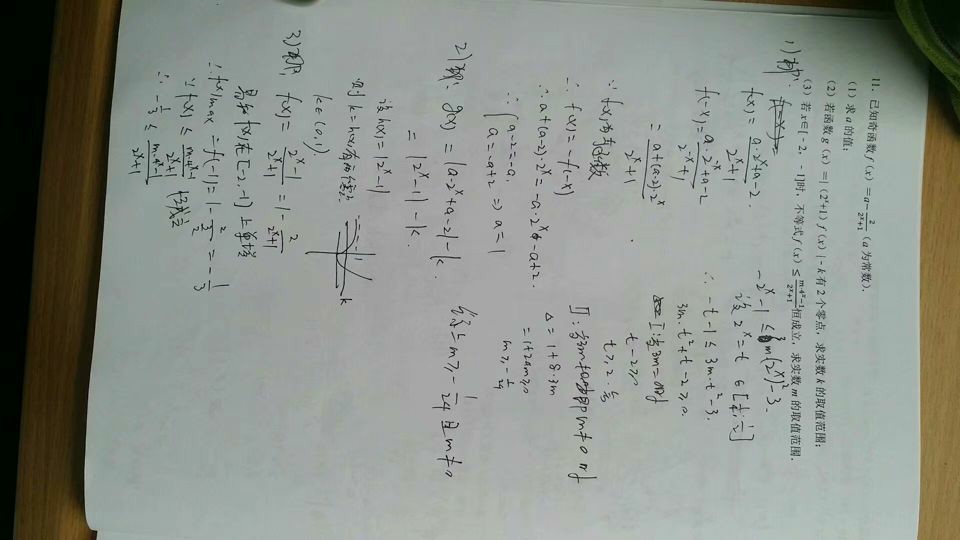 11. 已知奇函数 f(x)=a-\frac{2}{2^x+1} (a 为常数).
(1) 求 a 的值;
(2) 若函数 g(x)=|(2^x+1)f(x)|-k 有 2 个零点, 求实数 k 的取值范围;
(3) 若 x∈[-2, -1]时, 不等式 f(x)≤\frac{m·4^x-1}{2^x+1}恒成立, 求实数 m 的取值范围.
1)
f(x)=\frac{a·2^x+a-2}{2^x+1}.
f(-x)=\frac{a·2^{-x}+a-2}{2^{-x}+1}
=\frac{a+(a-2)·2^x}{2^x+1}
∵ f(x)为奇函数
∴ f(x)=-f(-x)
∴ a+(a-2)·2^x=-a·2^x-a+2.
∴ {a-2=-a.
a=-a+2 ⇒ a=1
2) 解: g(x)=|a·2^x+a-2|-k.
=|2^x-1|-k.
设h(x)=|2^x-1|
则k=h(x)有两个
k∈(0,1).
1
k
3)
f(x)=\frac{2^x-1}{2^x+1}=1-\frac{2}{2^x+1}
易知f(x)在[-2,-1]上单增
∴ f(x)max=f(-1)=1-\frac{2}{\frac{3}{2}}=-\frac{1}{3}
∵ f(x)≤\frac{m·4^x-1}{2^x+1}恒成立
∴ -\frac{1}{3}≤\frac{m·4^x-1}{2^x+1}
-2^x-1≤3m(2^x)^2-3.
设2^x=t∈[\frac{1}{4},\frac{1}{2}]
∴ -t-1≤3m·t^2-3.
3m·t^2+t-2≥0.
I: 当3m=0时
t-2≥0
t≥2.舍
II: 当3m≠0即m≠0时
Δ=1+8·3m
=1+24m≥0
m≥-\frac{1}{24}
综上m≥-\frac{1}{24}且m≠0